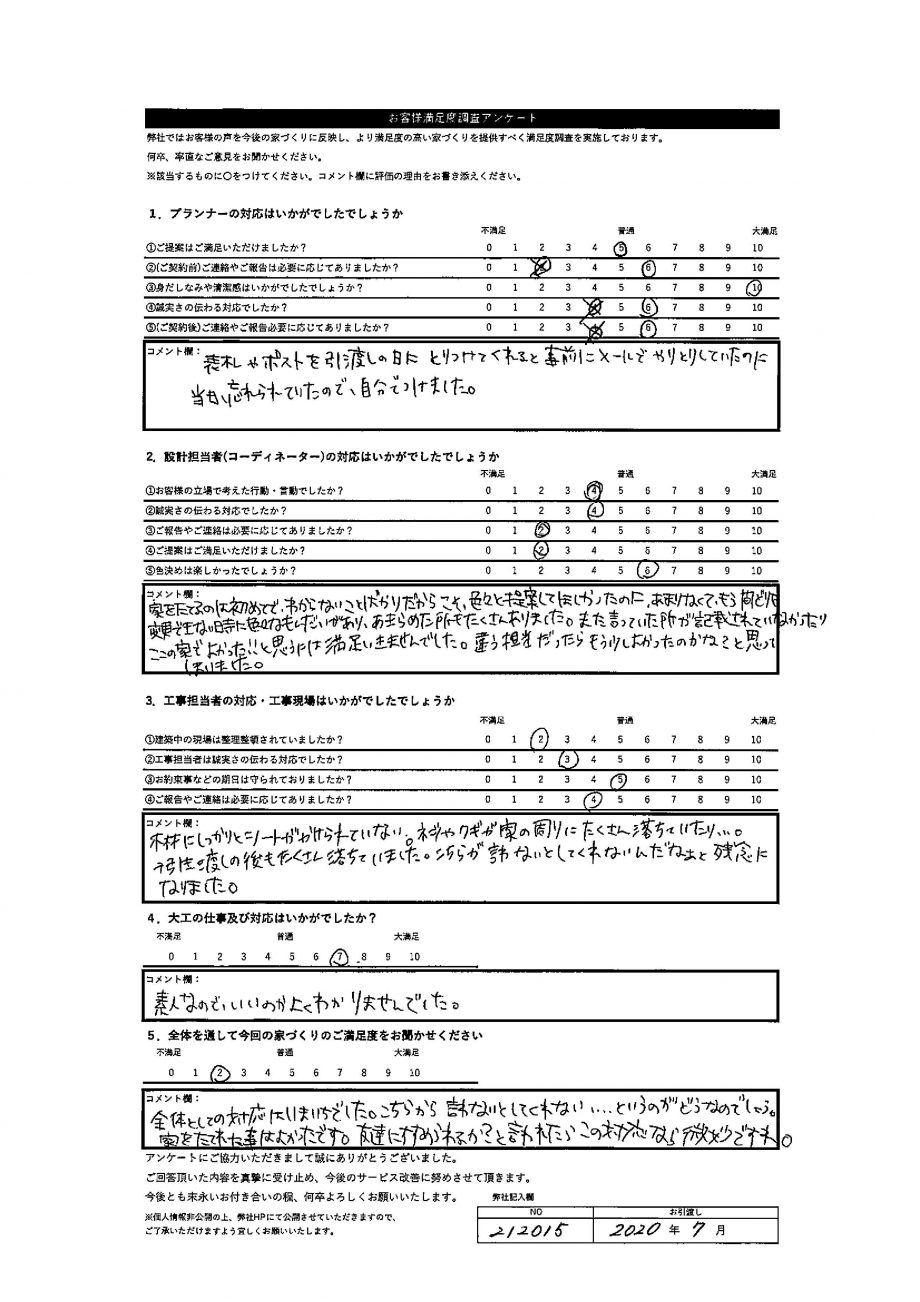 お客様満足度調査アンケート
弊社ではお客様の声を今後の家づくりに反映し、より満足度の高い家づくりを提供すべく満足度調査を実施しております。
何卒、率直なご意見をお聞かせください。
※該当するものに〇をつけてください。コメント欄に評価の理由をお書き添えください。
1．プランナーの対応はいかがでしたでしょうか
不満足 普通 大満足
①ご提案はご満足いただけましたか？ 0 1 2 3 4 5 6 7 8 9 10
②(ご契約前)ご連絡やご報告は必要に応じてありましたか？ 0 1 2 3 4 5 6 7 8 9 10
③身だしなみや清潔感はいかがでしたでしょうか？ 0 1 2 3 4 5 6 7 8 9 10
④誠実さの伝わる対応でしたか？ 0 1 2 3 4 5 6 7 8 9 10
⑤(ご契約後)ご連絡やご報告必要に応じてありましたか？ 0 1 2 3 4 5 6 7 8 9 10
コメント欄：
表札やポストを引渡しの日にとりつけてくれると事前にメールでやりとりしていたのに
当日忘れられていたので、自分でつけました。
2．設計担当者(コーディネーター)の対応はいかがでしたでしょうか
不満足 普通 大満足
①お客様の立場で考えた行動・言動でしたか？ 0 1 2 3 4 5 6 7 8 9 10
②誠実さの伝わる対応でしたか？ 0 1 2 3 4 5 6 7 8 9 10
③ご報告やご連絡は必要に応じてありましたか？ 0 1 2 3 4 5 6 7 8 9 10
④ご提案はご満足いただけましたか？ 0 1 2 3 4 5 6 7 8 9 10
⑤色決めは楽しかったでしょうか？ 0 1 2 3 4 5 6 7 8 9 10
コメント欄：
家をたてるのは初めてで、わからないことばかりだからこそ、色々と提案してほしかったのに、あまりなくて、もう間どりに
変更できない時に色々なもんだいがあり、あきらめた所もたくさんありました。また言っていた所が記載されていなかったり
ここの家でよかった!!と思うには満足いきませんでした。違う担当だったらもう少しよかったのかなぁと思って
しまいました。
3．工事担当者の対応・工事現場はいかがでしたでしょうか
不満足 普通 大満足
①建築中の現場は整理整頓されていましたか？ 0 1 2 3 4 5 6 7 8 9 10
②工事担当者は誠実さの伝わる対応でしたか？ 0 1 2 3 4 5 6 7 8 9 10
③お約束事などの期日は守られておりましたか？ 0 1 2 3 4 5 6 7 8 9 10
④ご報告やご連絡は必要に応じてありましたか？ 0 1 2 3 4 5 6 7 8 9 10
コメント欄：
木材にしっかりとシートがかけられていない。ネジやクギが家の周りにたくさん落ちていたり…。
引き渡しの後もたくさん落ちていました。こちらが言わないとしてくれないんだなぁと残念に
なりました。
4．大工の仕事及び対応はいかがでしたか？
不満足 普通 大満足
0 1 2 3 4 5 6 7 8 9 10
コメント欄：
素人なので、いいのかよくわかりませんでした。
5．全体を通して今回の家づくりのご満足度をお聞かせください
不満足 普通 大満足
0 1 2 3 4 5 6 7 8 9 10
コメント欄：
全体としての対応はいまいちでした。こちらから言わないとしてくれない….というのがどうなのでしょう。
家をたてれた事はよかったです。友達にすすめられるか？と言われたらこの対応なら微妙ですね。
アンケートにご協力いただきまして誠にありがとうございました。
ご回答頂いた内容を真摯に受け止め、今後のサービス改善に努めさせて頂きます。
今後とも末永いお付き合いの程、何卒よろしくお願いいたします。
※個人情報非公開の上、弊社HPにて公開させていただきますので、
ご了承いただけますよう宜しくお願いいたします。
弊社記入欄
NO お引渡し
212015 2020年7月